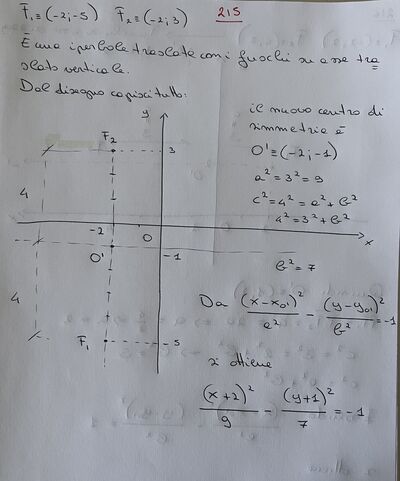 F₁≡(-2;-5) F₂≡(-2;3) 215
È una iperbole traslata con i fuochi su asse tra
slato verticale.
Dal disegno capisci tutto:
y
il nuovo centro di
simmetria è
F₂
3
O'≡(-2;-1)
a²=3²=9
4
c²=4²=a²+b²
4²=3²+b²
-2
O
x
O'
-1
b²=7
4
Da (x-x₀')²/a² - (y-y₀')²/b² =-1
F₁
-5
si ottiene
(x+2)²/9 - (y+1)²/7 =-1